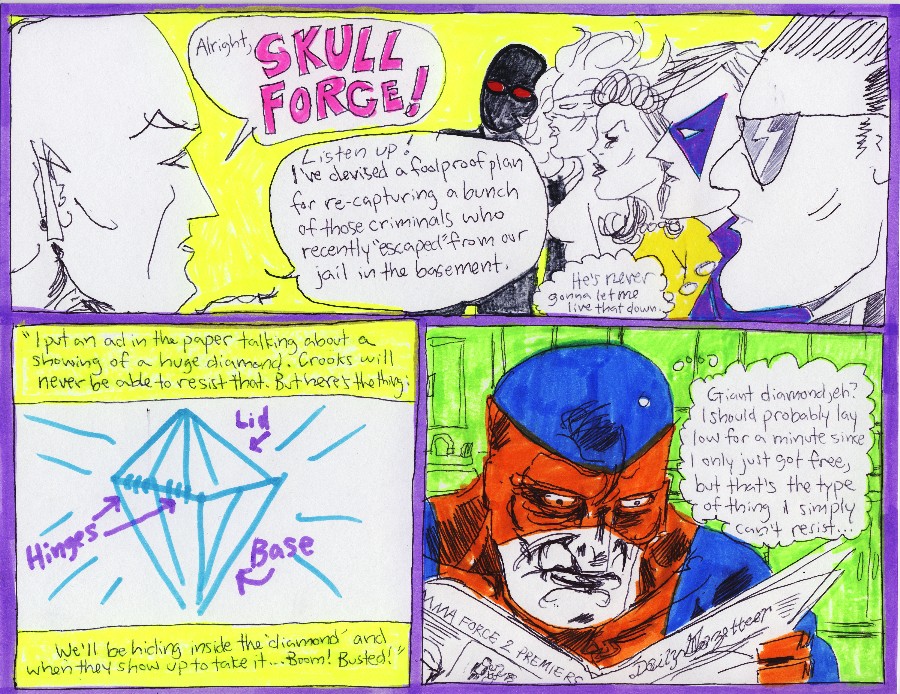 Alright,
SKULL
FORCE!
Listen up!
I've devised a foolproof plan
for re-capturing a bunch
of those criminals who
recently "escaped" from our
jail in the basement.
He's never
gonna let me
live that down.
"I put an ad in the paper talking about a
showing of a huge diamond. Crooks will
never be able to resist that. But here's the thing:
Lid
Hinges
Base
We'll be hiding inside the 'diamond' and
when they show up to take it...Boom! Busted!"
Giant diamond, eh?
I should probably lay
low for a minute since
I only just got free,
but that's the type
of thing I simply
can't resist...!
AMA FORCE 2 PREMIERS
Daily